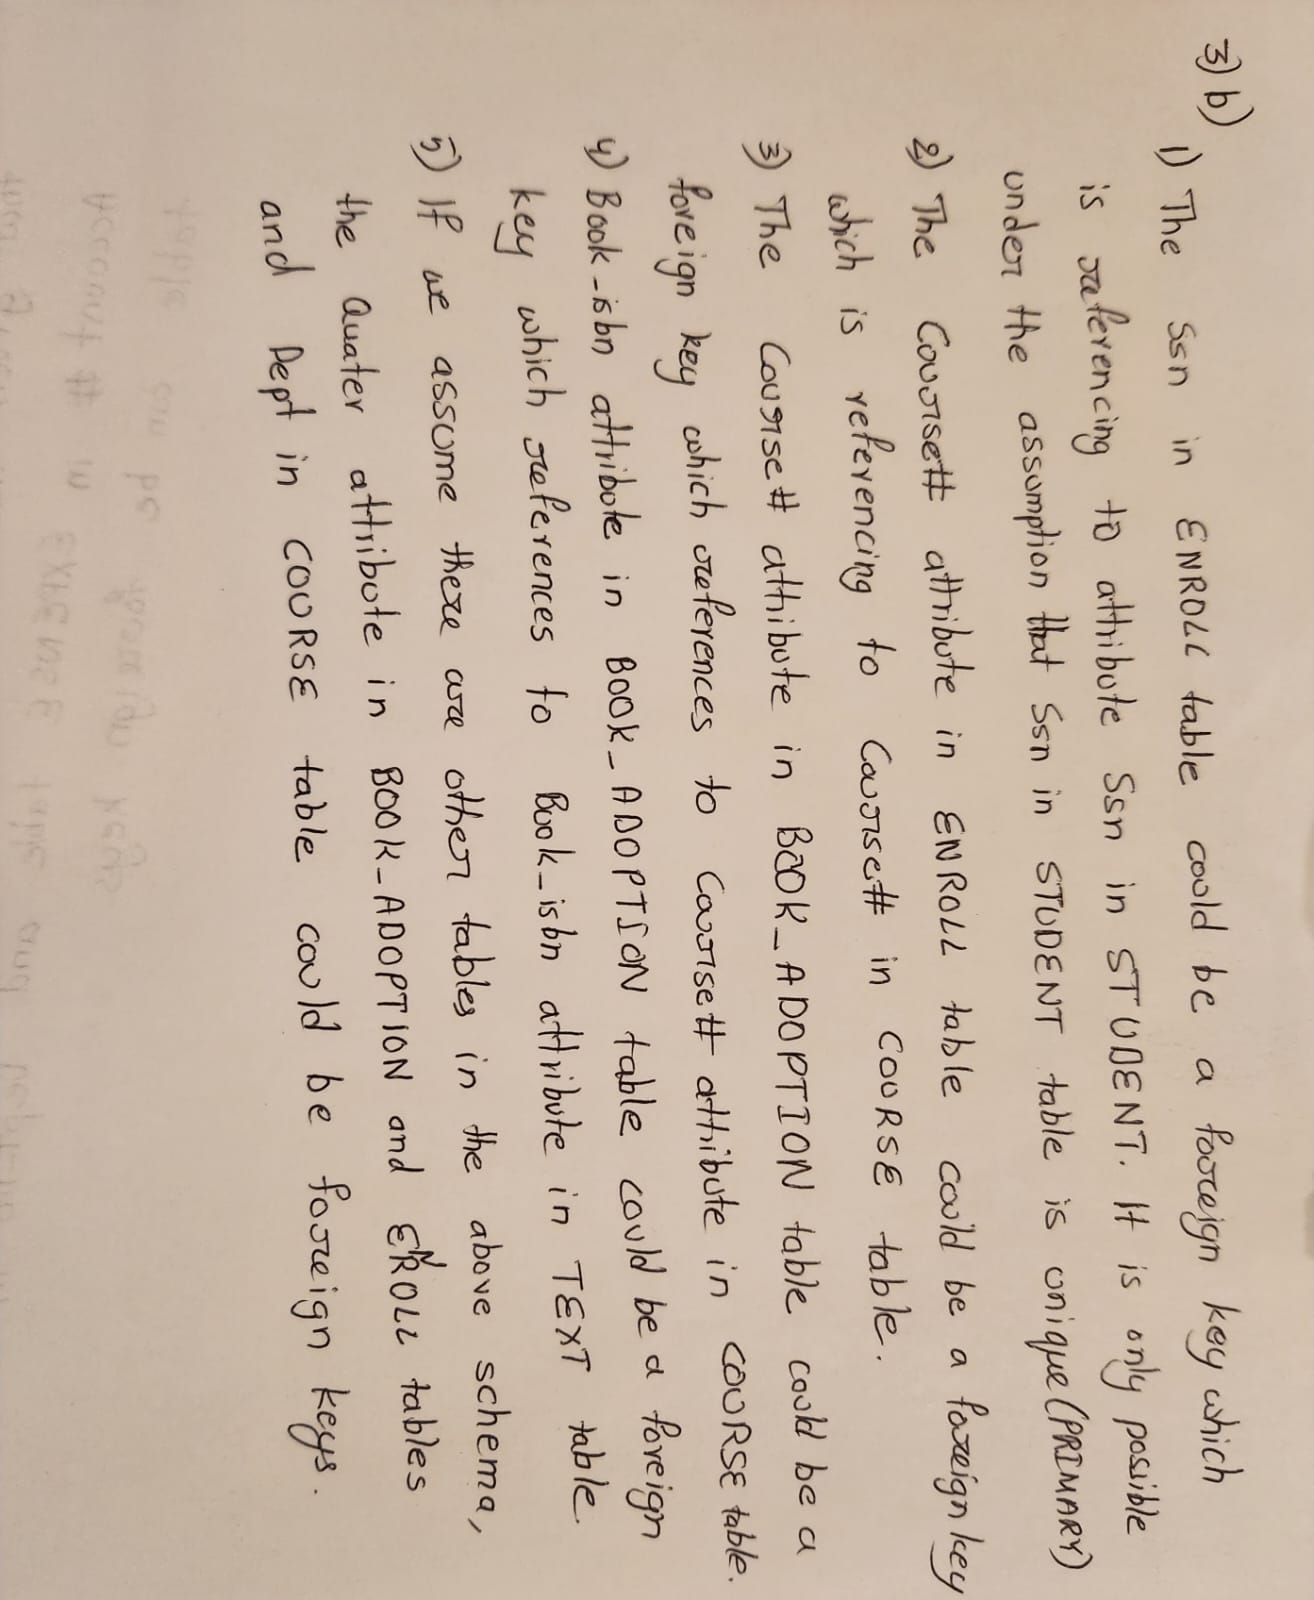 3) b)
1) The Ssn in ENROLL table could be a foreign key which
is referencing to attribute Ssn in STUDENT. It is only possible
under the assumption that Ssn in STUDENT table is unique (PRIMARY)
2) The Course# attribute in ENROLL table could be a foreign key
which is referencing to Course# in COURSE table.
3) The Course# attribute in BOOK_ADOPTION table could be a
foreign key which references to Course# attribute in COURSE table.
4) Book-isbn attribute in BOOK_ADOPTION table could be a foreign
key which references to Book_isbn attribute in TEXT table.
5) If we assume there are other tables in the above schema,
the Quater attribute in BOOK_ADOPTION and ENROLL tables
and Dept in COURSE table could be foreign keys.